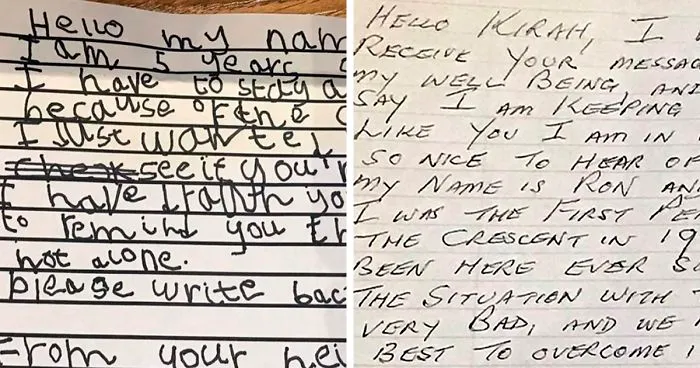 Hello my nam
I am 5 years
I have to stay a
because of the
I Just wan te
see if you'r
I have you
to remind you th
not alone.
please write bac
From your nei
HELLO KIRAH, I
RECEIVE YOUR MESSAG
MY WELL BEING, AND
SAY I AM KEEPING
LIKE YOU I AM IN
SO NICE TO HEAR OF
MY NAME IS RON AN
I WAS THE FIRST PE
THE CRESCENT IN 19
BEEN HERE EVER S
THE SITUATION WITH
VERY BAD, AND WE
BEST TO OVERCOME I